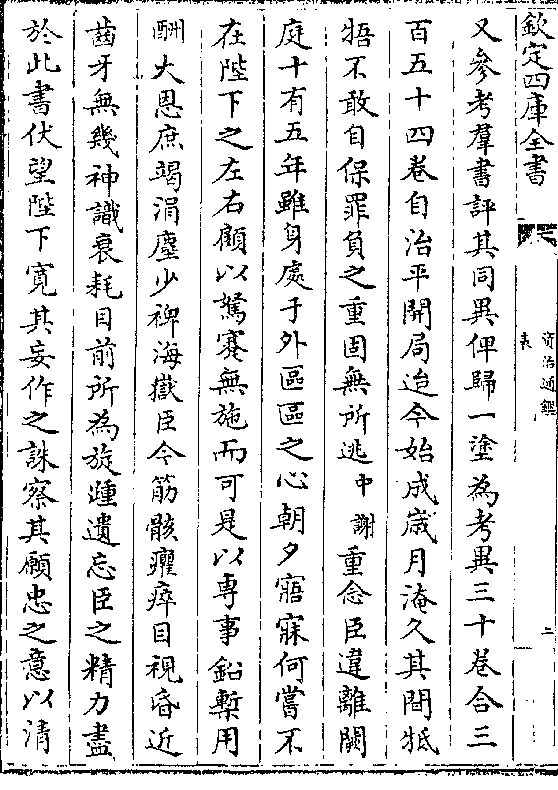 欽定四庫全書
資治通鑑
表
二
又參考羣書評其同異俾歸一塗為考異三十卷合三
百五十四卷自治平開局迨今始成歲月淹久其間牴
牾不敢自保罪負之重固無所逃中謝重念臣違離闕
庭十有五年雖身處于外區區之心朝夕寤寐何嘗不
在陛下之左右顧以駑蹇無施而可是以專事鉛槧用
酬大恩庶竭涓塵少裨海嶽臣今筋骸癯瘁目視昏近
齒牙無幾神識衰耗目前所為旋踵遺忘臣之精力盡
於此書伏望陛下寬其妄作之誅察其願忠之意以清